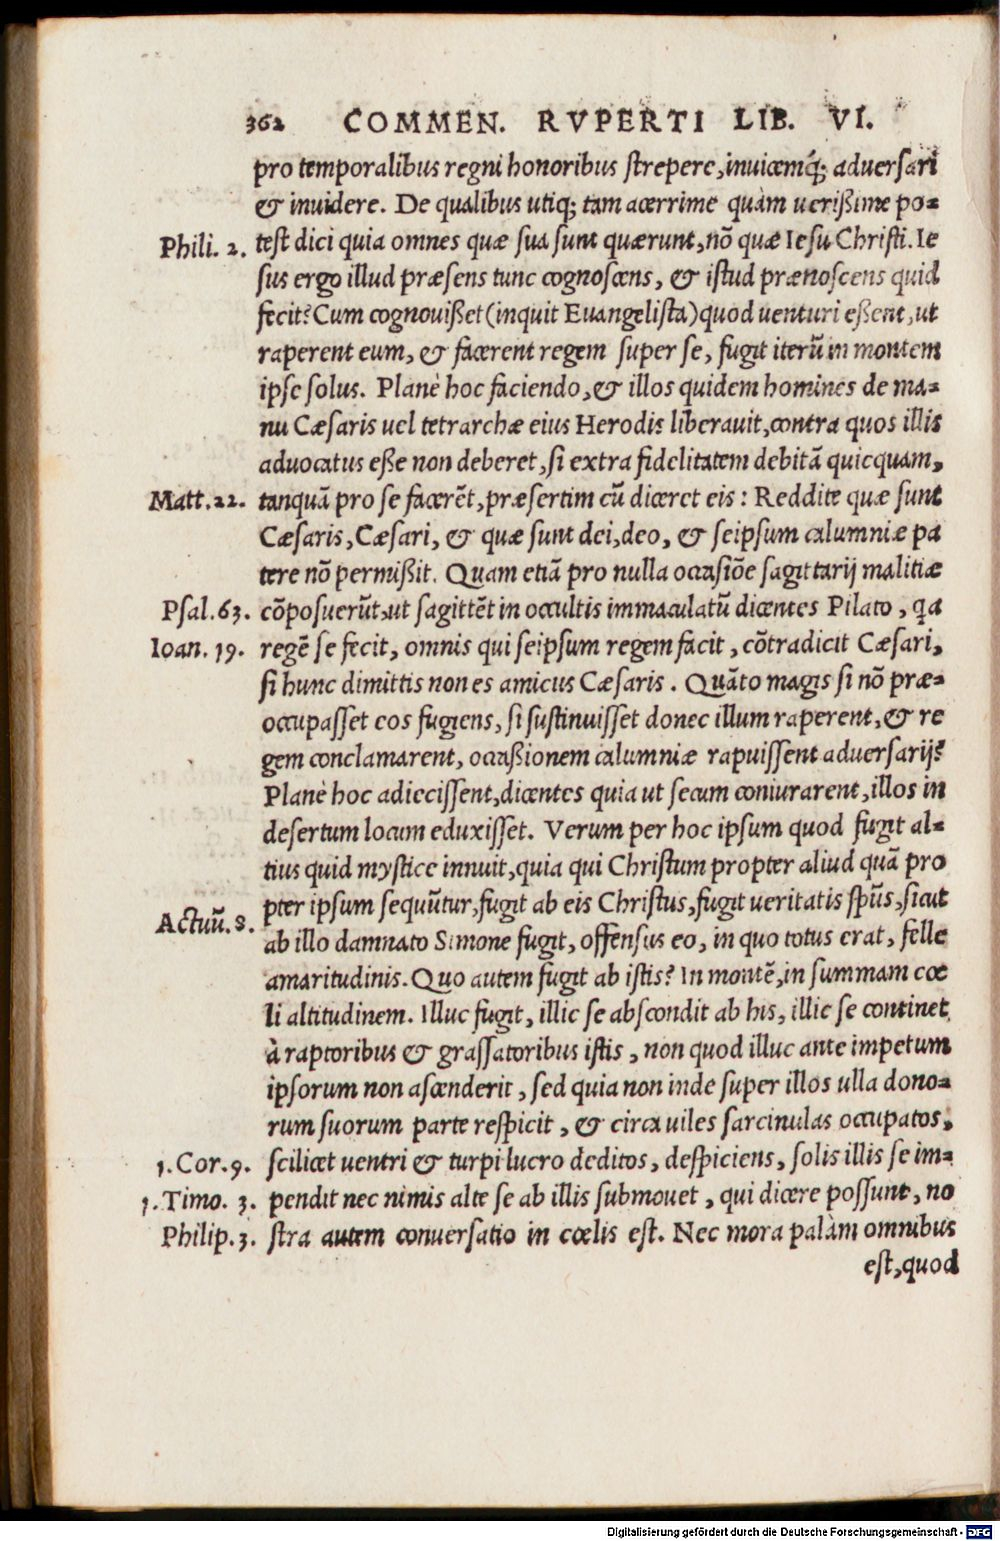 362 COMMEN. RVPERTI LIB. VI.
pro temporalibus regni honoribus strepere, inuicemq́; aduersari
& inuidere. De qualibus utiq; tam acerrime quàm uerißime po=
Phili. 2. test dici quia omnes quæ sua sunt quærunt, nõ quæ Iesu Christi. Ie
sus ergo illud præsens tunc cognoscens, & istud prænoscens quid
fecit? Cum cognouißet (inquit Euangelista) quod uenturi eßent, ut
raperent eum, & facerent regem super se, fugit iterũ in montem
ipse solus. Planè hoc faciendo, & illos quidem homines de ma=
nu Cæsaris uel tetrarchæ eius Herodis liberauit, contra quos illis
aduocatus eße non deberet, si extra fidelitatem debitã quicquam,
Matt. 22. tanquã pro se facerẽt, præsertim cũ diceret eis: Reddite quæ sunt
Cæsaris, Cæsari, & quæ sunt dei, deo, & seipsum calumniæ pa
tere nõ permißit. Quam etiã pro nulla occasiõe sagittarij malitiæ
Psal. 63. cõposuerũt, ut sagittẽt in occultis immaculatũ dicentes Pilato, qa
Ioan. 19. regẽ se fecit, omnis qui seipsum regem facit, cõtradicit Cæsari,
si hunc dimittis non es amicus Cæsaris. Quãto magis si nõ præ=
occupasset eos fugiens, si sustinuisset donec illum raperent, & re
gem conclamarent, occaßionem calumniæ rapuissent aduersarij?
Planè hoc adiecissent, dicentes quia ut secum coniurarent, illos in
desertum locum eduxisset. Verum per hoc ipsum quod fugit al=
tius quid mystice innuit, quia qui Christum propter aliud quã pro
pter ipsum sequũtur, fugit ab eis Christus, fugit ueritatis spũs, sicut
Actuũ. 8. ab illo damnato Simone fugit, offensus eo, in quo totus erat, felle
amaritudinis. Quo autem fugit ab istis? In montẽ, in summam cœ
li altitudinem. Illuc fugit, illic se abscondit ab his, illic se continet
à raptoribus & grassatoribus istis, non quod illuc ante impetum
ipsorum non ascenderit, sed quia non inde super illos ulla dono=
rum suorum parte respicit, & circa uiles sarcinulas occupatos,
1. Cor. 9. scilicet uentri & turpi lucro deditos, despiciens, solis illis se im=
1. Timo. 3. pendit nec nimis alte se ab illis submouet, qui dicere possunt, no
Philip. 3. stra autem conuersatio in cœlis est. Nec mora palàm omnibus
est, quod
Digitalisierung gefördert durch die Deutsche Forschungsgemeinschaft - DFG